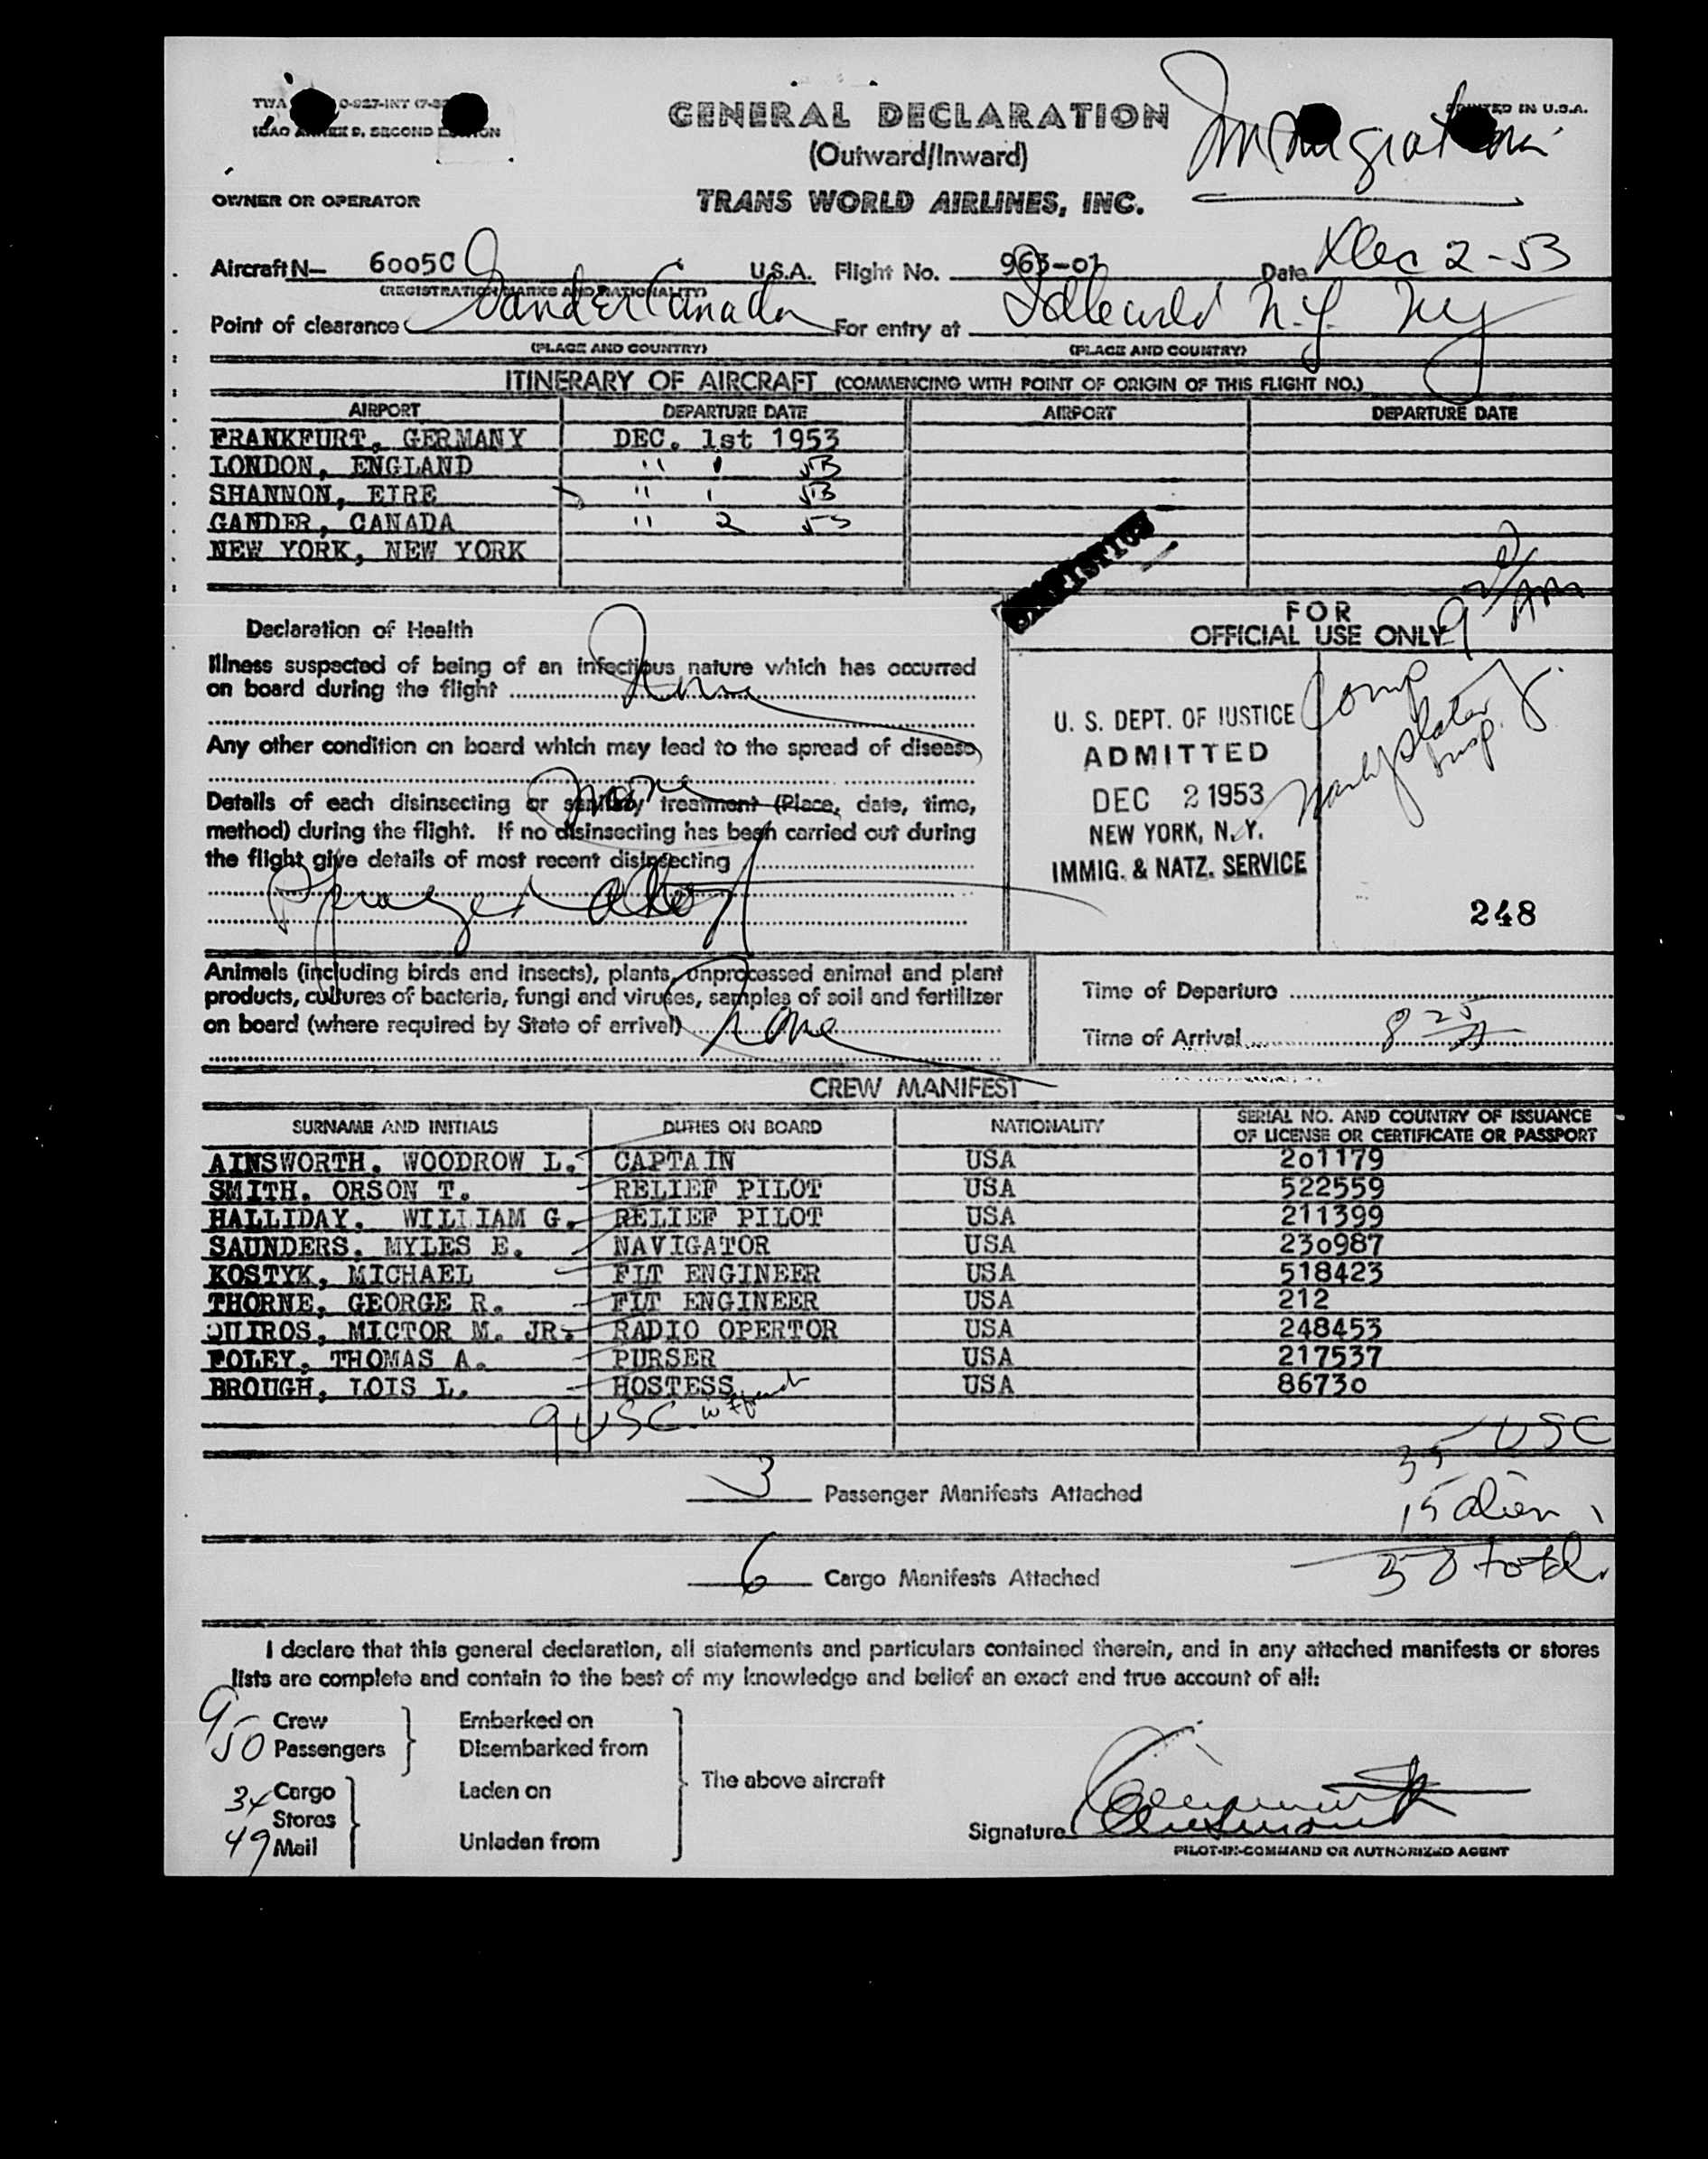 TWA O-927-INT (7-5
ICAO ANNEX 9, SECOND EDITION
GENERAL DECLARATION
(Outward/Inward)
Immigration
PRINTED IN U.S.A.
OWNER OR OPERATOR
TRANS WORLD AIRLINES, INC.
Aircraft N— 6005C U.S.A. Flight No. 963-01 Date Dec 2-53
(REGISTRATION MARKS AND NATIONALITY)
Point of clearance Gander Canada For entry at Idlewild N.Y. NY
(PLACE AND COUNTRY) (PLACE AND COUNTRY)
ITINERARY OF AIRCRAFT (COMMENCING WITH POINT OF ORIGIN OF THIS FLIGHT NO.)
AIRPORT DEPARTURE DATE AIRPORT DEPARTURE DATE
FRANKFURT, GERMANY DEC. 1st 1953
LONDON, ENGLAND " 1 53
SHANNON, EIRE " 1 53
GANDER, CANADA " 2 53
NEW YORK, NEW YORK
STATISTICS
FOR
OFFICIAL USE ONLY
Declaration of Health
Illness suspected of being of an infectious nature which has occurred
on board during the flight None
Any other condition on board which may lead to the spread of disease
None
Details of each disinsecting or sanitary treatment (Place, date, time,
method) during the flight. If no disinsecting has been carried out during
the flight give details of most recent disinsecting
U. S. DEPT. OF JUSTICE
ADMITTED
DEC 2 1953
NEW YORK, N. Y.
IMMIG. & NATZ. SERVICE
Comp
Insp.
248
Animals (including birds and insects), plants, unprocessed animal and plant
products, cultures of bacteria, fungi and viruses, samples of soil and fertilizer
on board (where required by State of arrival) None
Time of Departure
Time of Arrival 8 25
CREW MANIFEST
SURNAME AND INITIALS DUTIES ON BOARD NATIONALITY SERIAL NO. AND COUNTRY OF ISSUANCE OF LICENSE OR CERTIFICATE OR PASSPORT
AINSWORTH, WOODROW L. CAPTAIN USA 201179
SMITH, ORSON T. RELIEF PILOT USA 522559
HALLIDAY, WILLIAM G. RELIEF PILOT USA 211399
SAUNDERS, MYLES E. NAVIGATOR USA 230987
KOSTYK, MICHAEL FLT ENGINEER USA 518423
THORNE, GEORGE R. FLT ENGINEER USA 212
QUIROS, MICTOR M. JR. RADIO OPERTOR USA 248453
FOLEY, THOMAS A. PURSER USA 217537
BROUGH, LOIS L. HOSTESS USA 86730
9 USC
35 USC
3 Passenger Manifests Attached
15 alien
6 Cargo Manifests Attached
50 total
I declare that this general declaration, all statements and particulars contained therein, and in any attached manifests or stores
lists are complete and contain to the best of my knowledge and belief an exact and true account of all:
9 Crew Embarked on
50 Passengers Disembarked from
The above aircraft
34 Cargo Laden on
Stores
49 Mail Unladen from
Signature
PILOT-IN-COMMAND OR AUTHORIZED AGENT